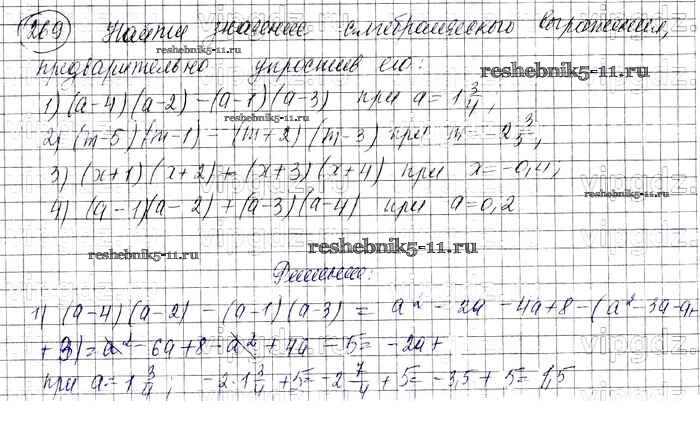 269 Найти значение алгебраического выражения,
reshebnik5-11.ru
предварительно упростив его:
reshebnik5-11.ru
1) (a-4)(a-2)-(a-1)(a-3) при a=1 3/4;
reshebnik5-11.ru
2) (m-5)(m-1)-(m+2)(m-3) при m=-2 3/5;
3) (x+1)(x+2)+(x+3)(x+4) при x=-0,4;
reshebnik5-11.ru
4) (a-1)(a-2)+(a-3)(a-4) при a=0,2
reshebnik5-11.ru
reshebnik5-11.ru
Решение:
1) (a-4)(a-2)-(a-1)(a-3)=a²-2a-4a+8-(a²-3a-a+
+3)=a²-6a+8-a²+4a-5=-2a+
при a=1 3/4; -2·1 3/4+5=-2 7/4+5=-3,5+5=1,5
vipgdz.ru